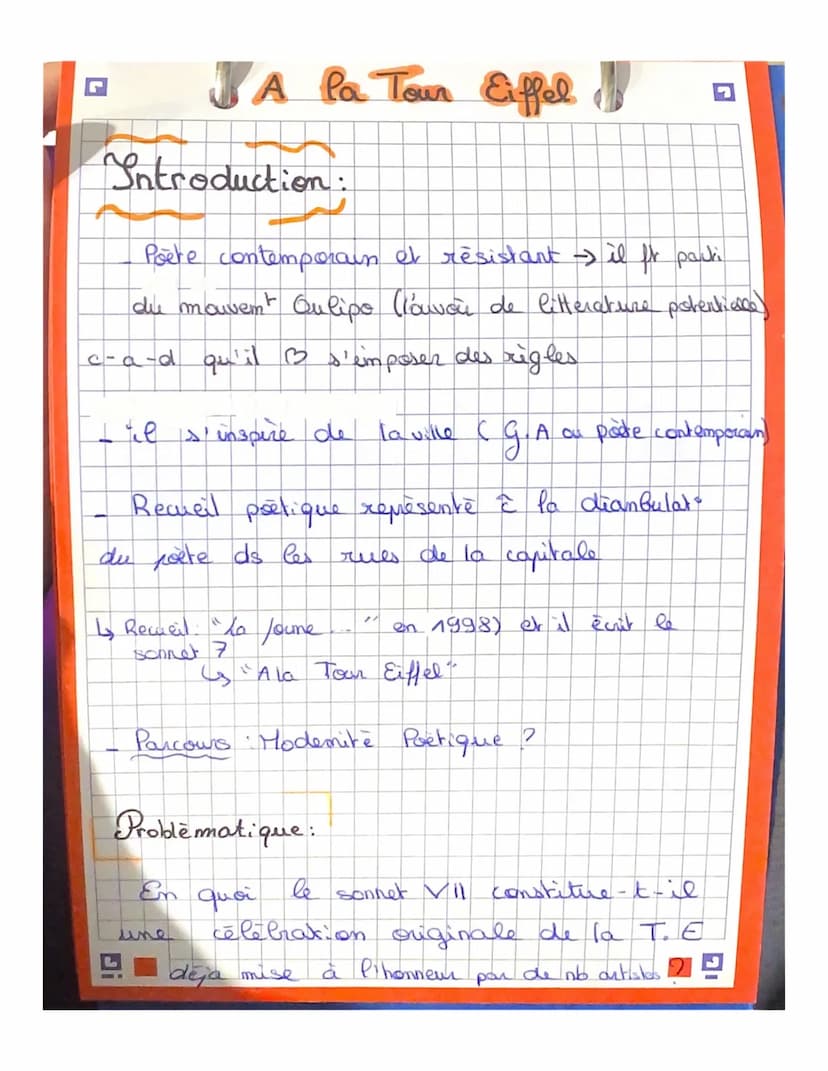 A la Tour Eiffel
Introduction :
- Poëte contemporain et résistant → il ft parti
du mouvemt Oulipo (l'ouvoi de litterature potentielle)
c-a-d qu'il ♡ s'imposer des règles
- il s'inspire de la ville ( G.A ou poète contemporain)
- Recueil poëtique représenté à la diambulat°
du poëte ds les rues de la capitale
↳ Recueil : "La forme ..." en 1998) et il écrit le
sonnet 7
↳ "A la Tour Eiffel"
- Parcours : Modernité Poëtique ?
Problèmatique :
En quoi le sonnet VII constitue-t-il
une célébration originale de la T.E
déja mise à l'honneur par de nb artistes ?